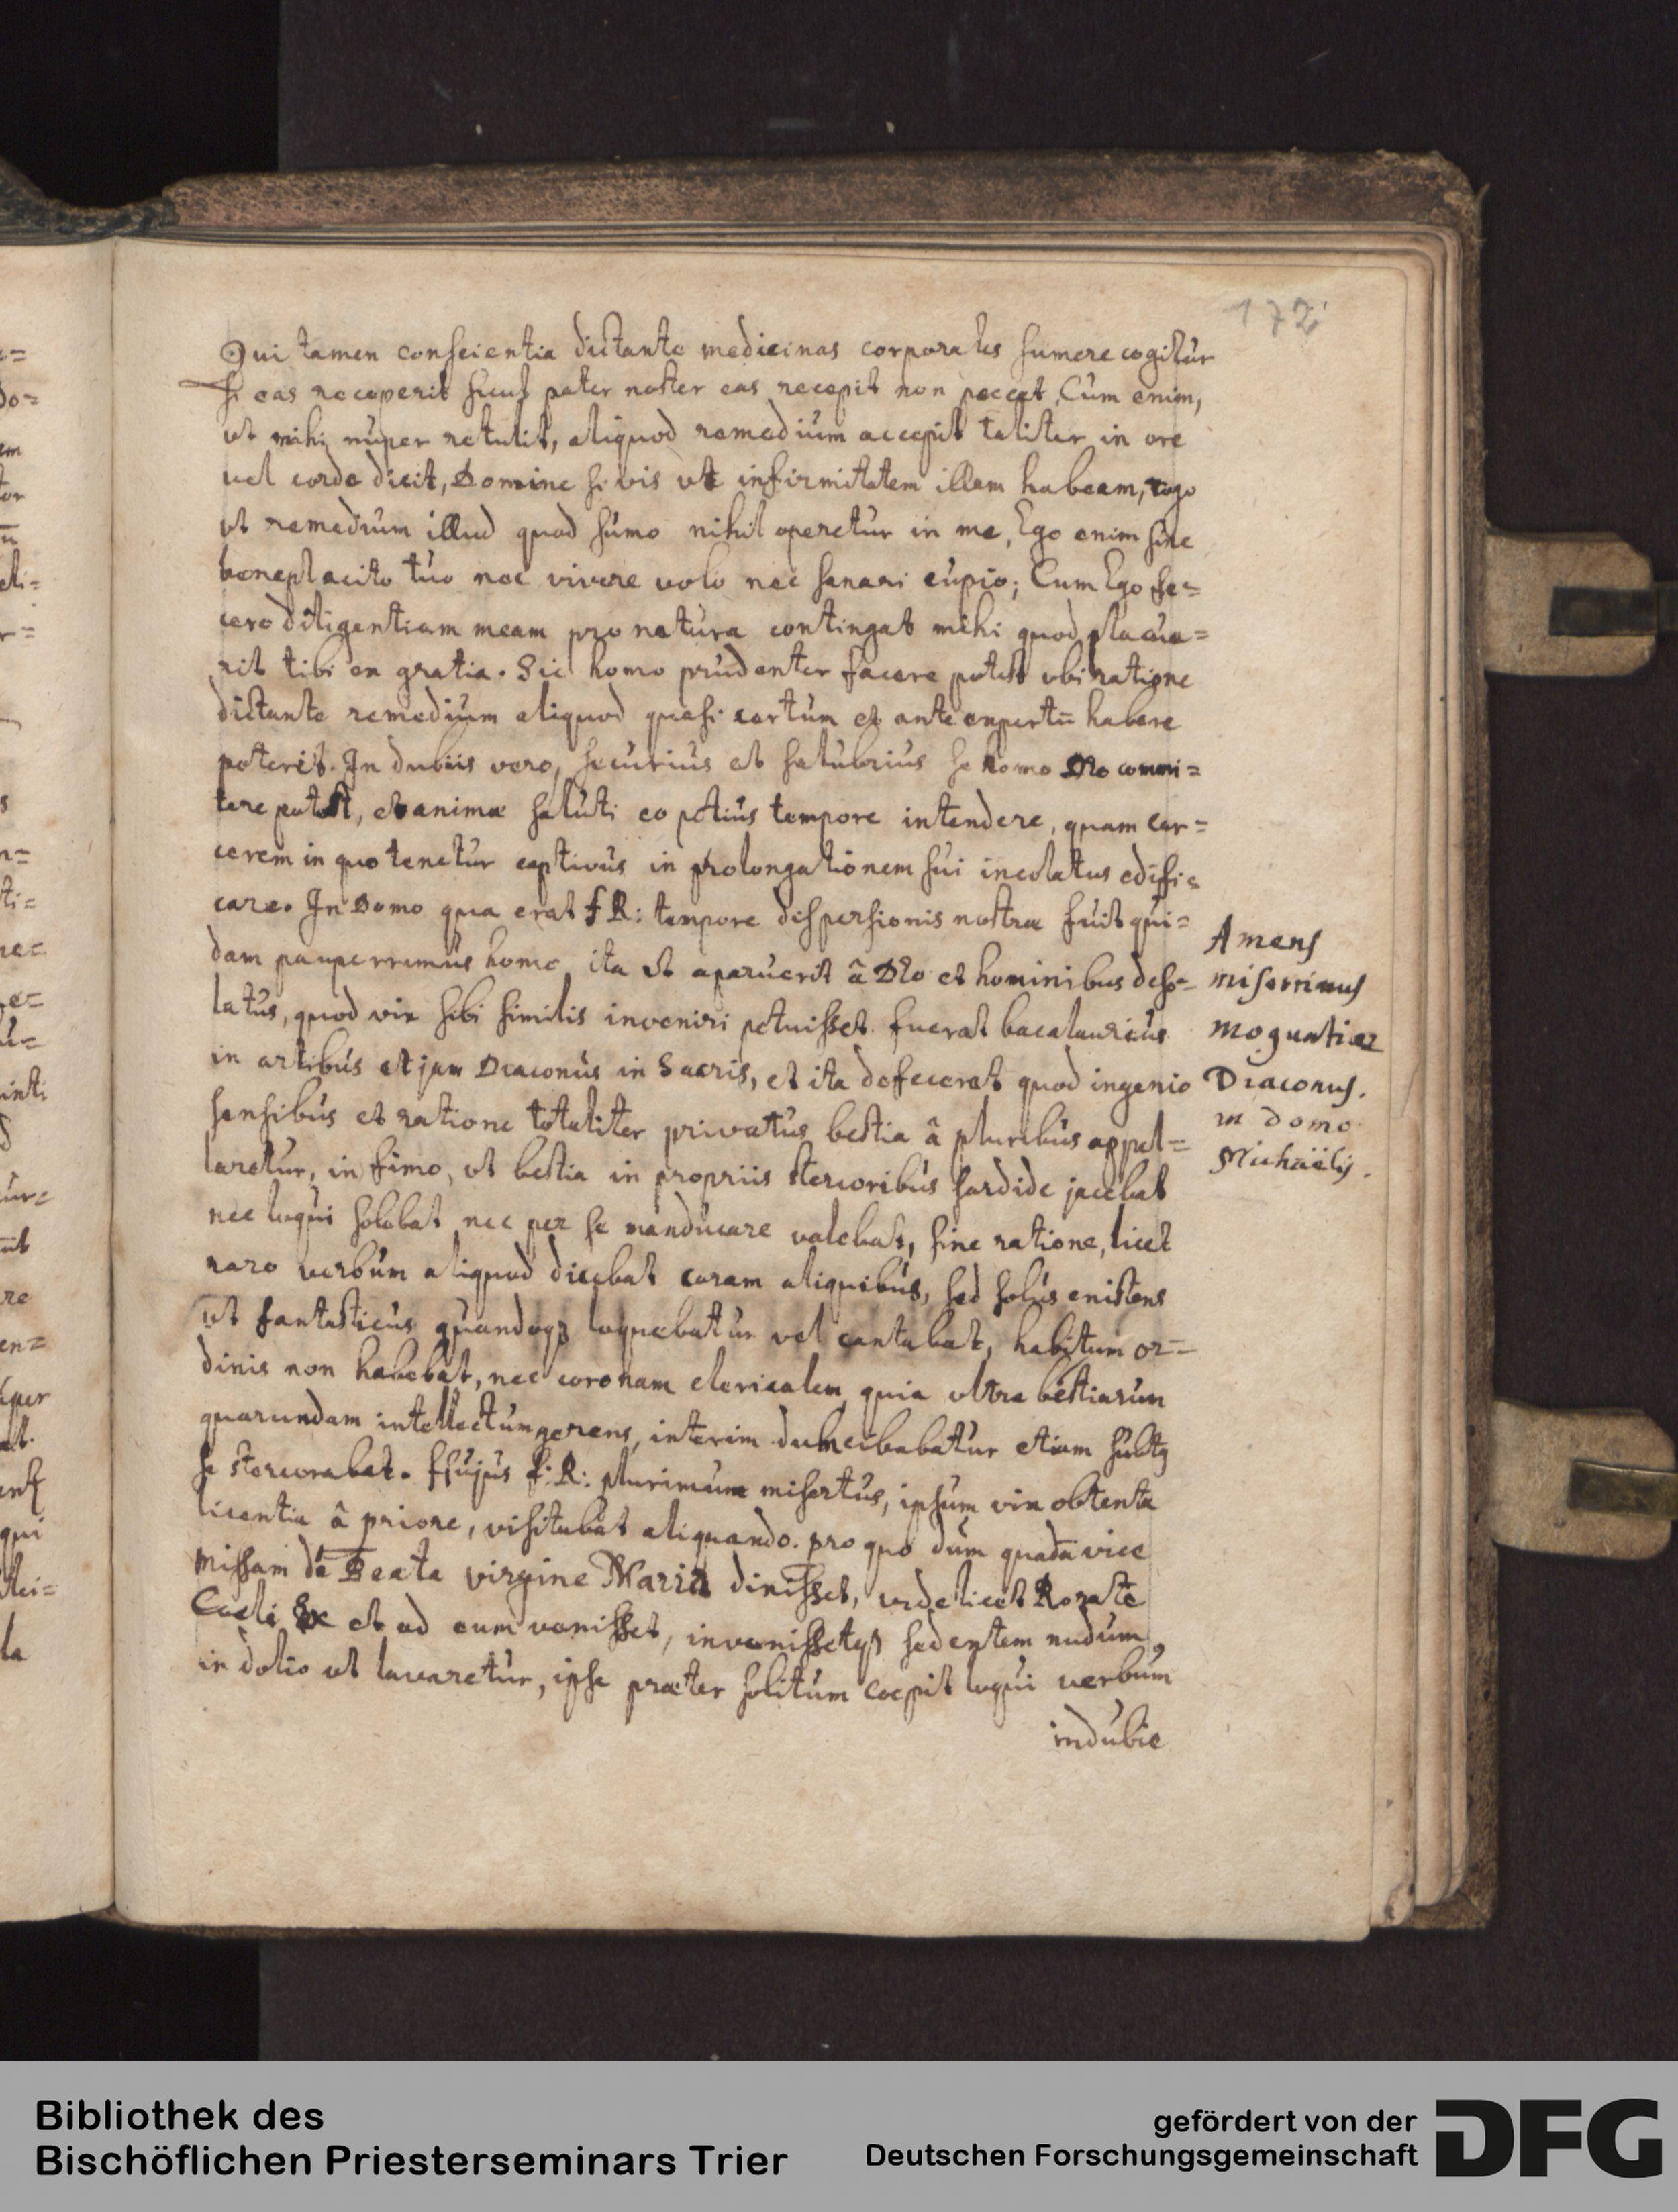 172
Qui tamen conscientia dictante medicinas corporales sumere cogitur
si eas receperit sicut pater noster eas recepit non peccat, Cum enim,
ut mihi nuper retulit, aliquod remedium accepit taliter in ore
vel corde dicit, Domine si vis ut infirmitatem illam habeam, rogo
ut remedium illud quod sumo nihil operetur in me, Ego enim sine
beneplacito tuo nec vivere volo nec sanari cupio; Cum Ego fe=
cero diligentiam meam pro natura contingat mihi quod placue=
rit tibi ex gratia. Sic homo prudenter facere potest ubi ratione
dictante remedium aliquod quasi certum et ante expertū habere
poterit. In dubiis vero, securius et salubrius se homo Deo commi=
tere potest, et animæ saluti eo potius tempore intendere, quam car=
cerem in quo tenetur captivus in prolongationem sui incolatus edifi=
care. In Domo qua erat f R: tempore dispersionis nostræ fuit qui=
dam pauperrimus homo ita ut aparuerit â Deo et hominibus deso=
latus, quod vix sibi similis inveniri potuisset. fuerat bacalaurius
in artibus et jam Diaconus in Sacris, et ita defecerat quod ingenio
sensibus et ratione totaliter privatus bestia â pluribus appel=
laretur, in fimo, ut bestia in propriis stercoribus sordide jacebat
nec loqui solebat nec per se manducare valebat, sine ratione, licet
raro verbum aliquod dicebat coram aliquibus, sed solus existens
ut fantasticus quandoqȝ loquebatur vel cantabat, habitum or=
dinis non habebat, nec coronam clericalem quia ultra bestiarum
quarundam intellectum gerens, interim dum cibabatur etiam subtȝ
se stercorabat. Hujus f: R: plurimum misertus, ipsum vix obtenta
licentia â priore, visitabat aliquando. pro quo dum quadā vice
missam de Beata virgine Maria dixisset, videlicet Rorate
Cæli &c et ad eum venisset, invenissetqȝ sedentem nudum,
in dolio ut lavaretur, ipse præter solitum cœpit loqui verbum
indubie
Amens
miserrimus
moguntiæ
Diaconus.
in domo
Michaëlis.
Bibliothek des
Bischöflichen Priesterseminars Trier
gefördert von der
Deutschen Forschungsgemeinschaft
DFG